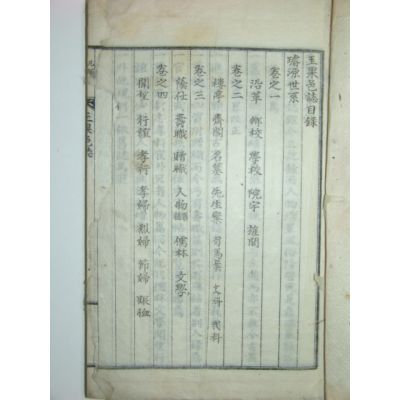 玉果邑誌目錄
璿源世系
卷之一
沿革 鄕校 學校 院宇 旌閭
卷之二
樓亭 齋閣 名墓 先生案 司馬案 文科 武科
卷之三
蔭仕 壽職 贈職 人物 儒林 文學
卷之四
閨 行誼 孝行 孝婦 烈婦 節婦 賑恤
玉果邑誌